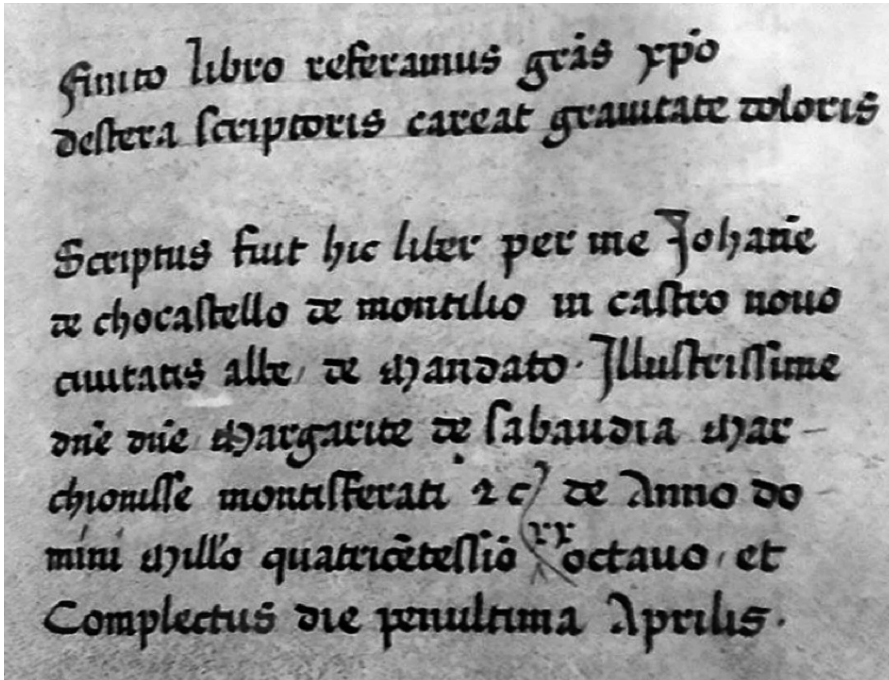 finito libro referamus grãs xp̃o
destera scriptoris careat grauitate doloris
Scriptus fuit hic liber per me Johanẽ
de chocastello de montilio in castro nouo
ciuitatis albe, de Mandato. Illustrissime
dñe dñe Margarite de sabaudia Mar-
chionisse montisferati ⁊ c̃ de Anno do-
mini Millo quatricẽtessiõ xx octauo, et
Complectus die penultima Aprilis.